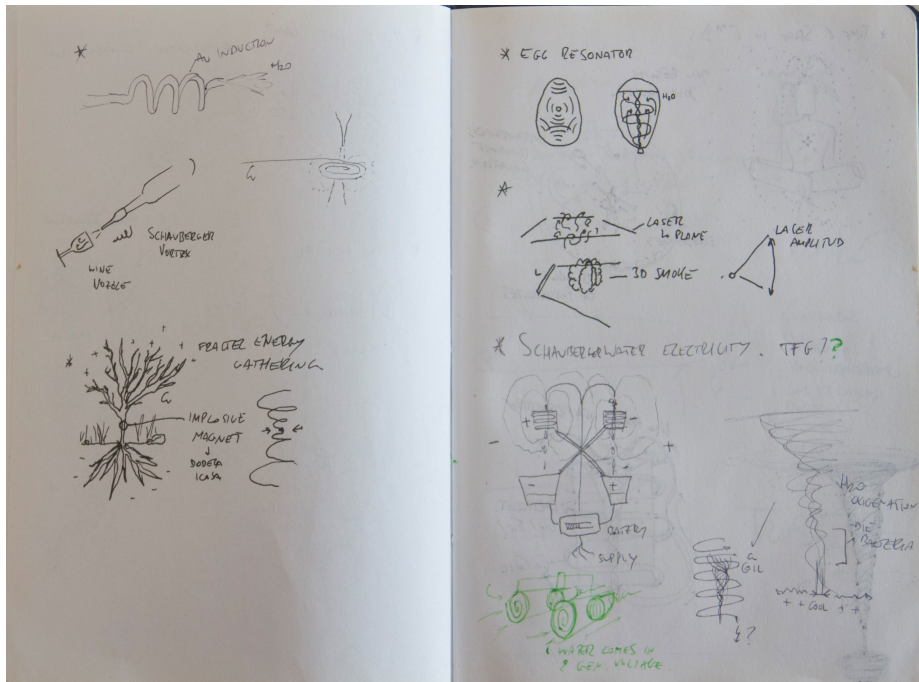 *
Au INDUCTION
H2O
Cu
SCHAUBERGER
VORTEX
WINE
NOZZLE
*
FRACTER ENERGY
GATHERING
Cu
IMPLOSIVE
MAGNET
↓
DODECA
ICOSA
* EGG RESONATOR
H2O
*
LASER
PLANE
3D SMOKE
LASER
AMPLITUD
* SCHAUBERGER WATER ELECTRICITY. TFG??
+
-
-
+
-
+
BATERY
SUPPLY
H2O
OXIGENATION
DIE
BACTERIA
+ + COOL + +
?
WATER COMES IN
2 GEN. VOLTAGE.